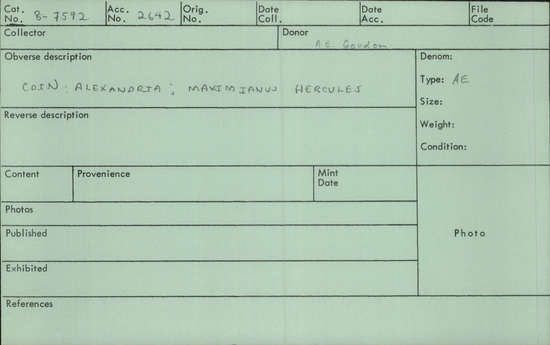 Cat. No. 8-7592 Acc. No. 2642 Orig. No. Date Coll. Date Acc. File Code
Collector Donor A.E. Gordon
Obverse description Denom:
COIN: ALEXANDRIA; MAXIMIANUS HERCULES Type: AE
Size:
Reverse description Weight:
Condition:
Content Provenience Mint Date
Photos
Published Photo
Exhibited
References